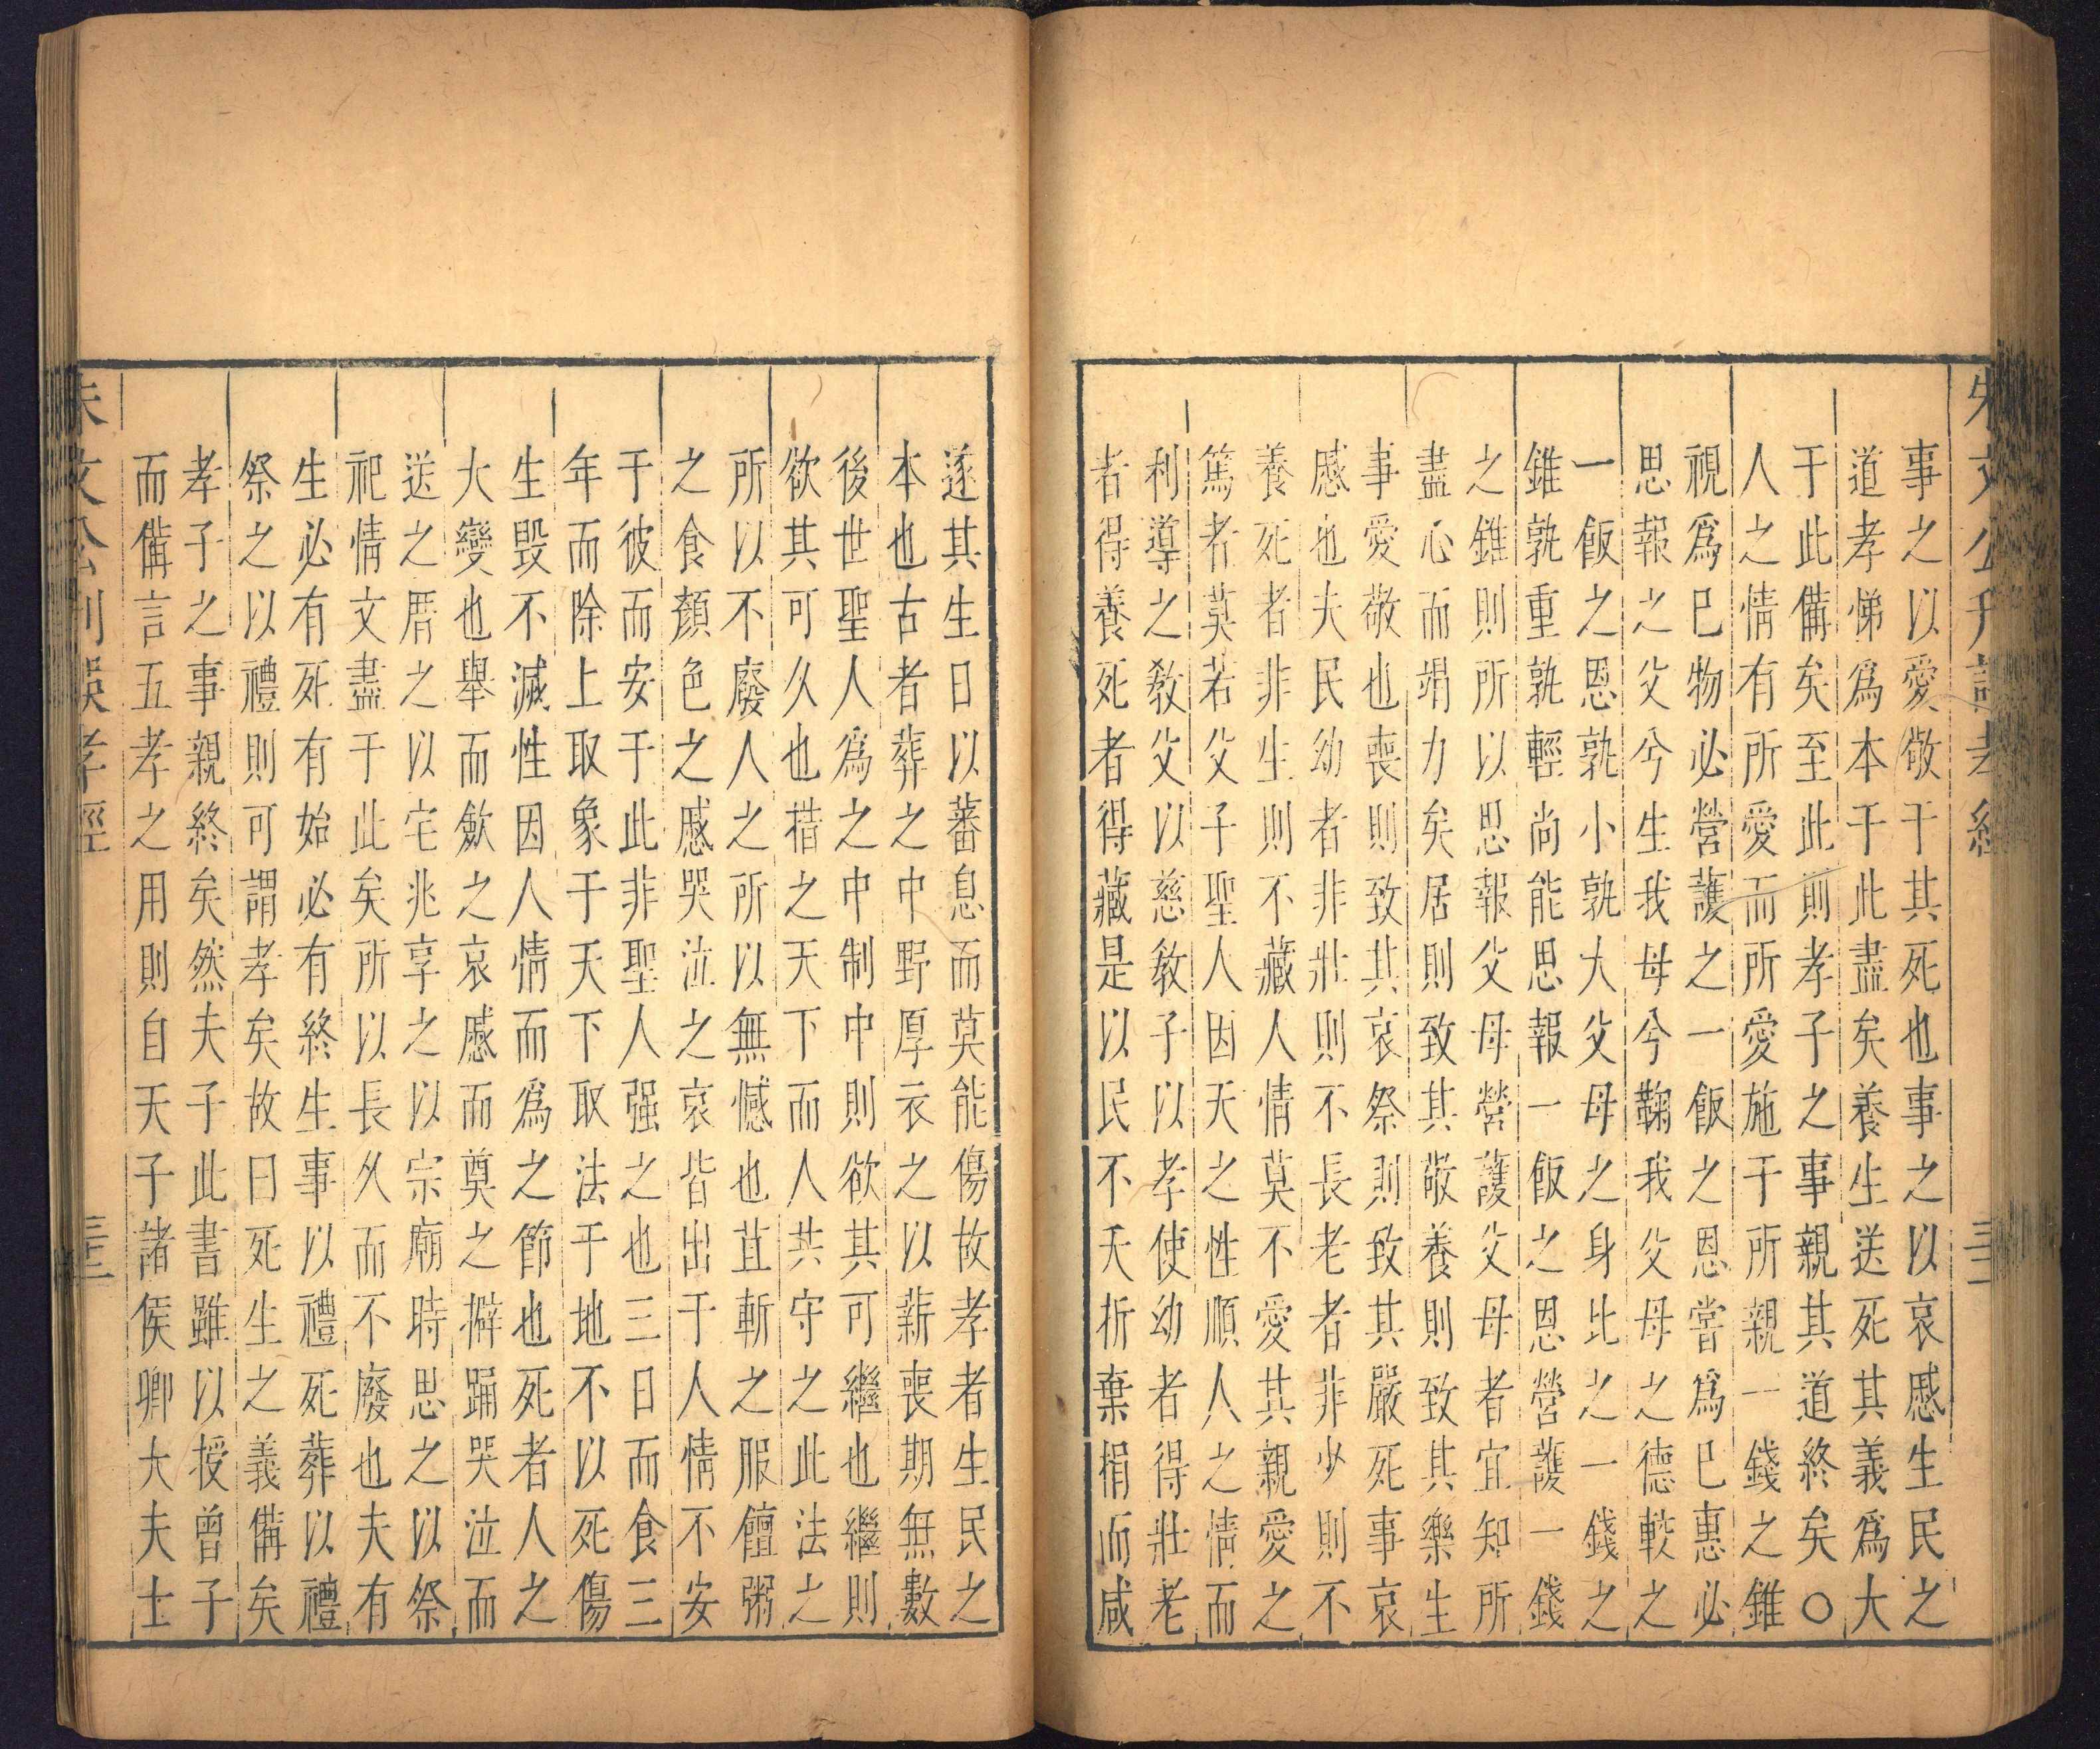 事之以愛敬于其死也事之以哀慼生民之
道孝悌爲本于此盡矣養生送死其義爲大
于此備矣至此則孝子之事親其道終矣○
人之情有所愛而所愛施于所親一錢之錐
視爲巳物必營護之一飯之恩嘗爲巳惠必
思報之父兮生我母兮鞠我父母之德較之
一飯之恩孰小孰大父母之身比之一錢之
錐孰重孰輕尚能思報一飯之恩營護一錢
之錐則所以思報父母營護父母者宜知所
盡心而竭力矣居則致其敬養則致其樂生
事愛敬也喪則致其哀祭則致其嚴死事哀
慼也夫民幼者非壯則不長老者非少則不
養死者非生則不藏人情莫不愛其親愛之
篤者莫若父子聖人因天之性順人之情而
利導之教父以慈教子以孝使幼者得壯老
者得養死者得藏是以民不夭折棄捐而咸
遂其生日以蕃息而莫能傷故孝者生民之
本也古者葬之中野厚衣之以薪喪期無數
後世聖人爲之中制中則欲其可繼也繼則
欲其可久也措之天下而人共守之此法之
所以不廢人之所以無憾也苴斬之服饘粥
之食顏色之慼哭泣之哀皆出于人情不安
于彼而安于此非聖人强之也三日而食三
年而除上取象于天下取法于地不以死傷
生毀不滅性因人情而爲之節也死者人之
大變也舉而斂之哀慼而奠之擗踊哭泣而
送之厝之以宅兆享之以宗廟時思之以祭
祀情文盡于此矣所以長久而不廢也夫有
生必有死有始必有終生事以禮死葬以禮
祭之以禮則可謂孝矣故曰死生之義備矣
孝子之事親終矣然夫子此書雖以授曾子
而備言五孝之用則自天子諸侯卿大夫士
朱文公刊誤孝經